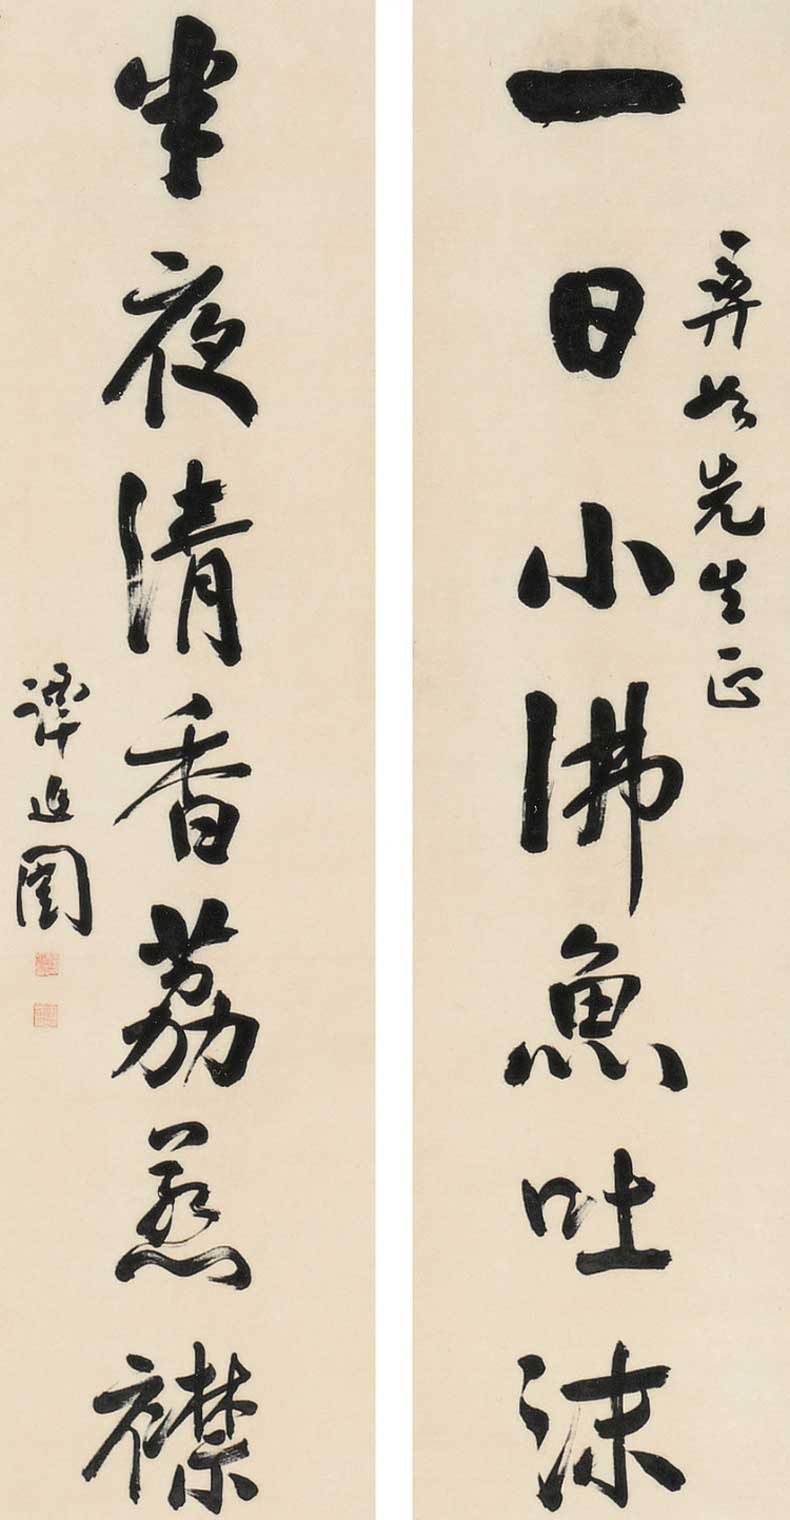 先生正
一日小沸魚吐沫
半夜清香荔襟
譚延闓